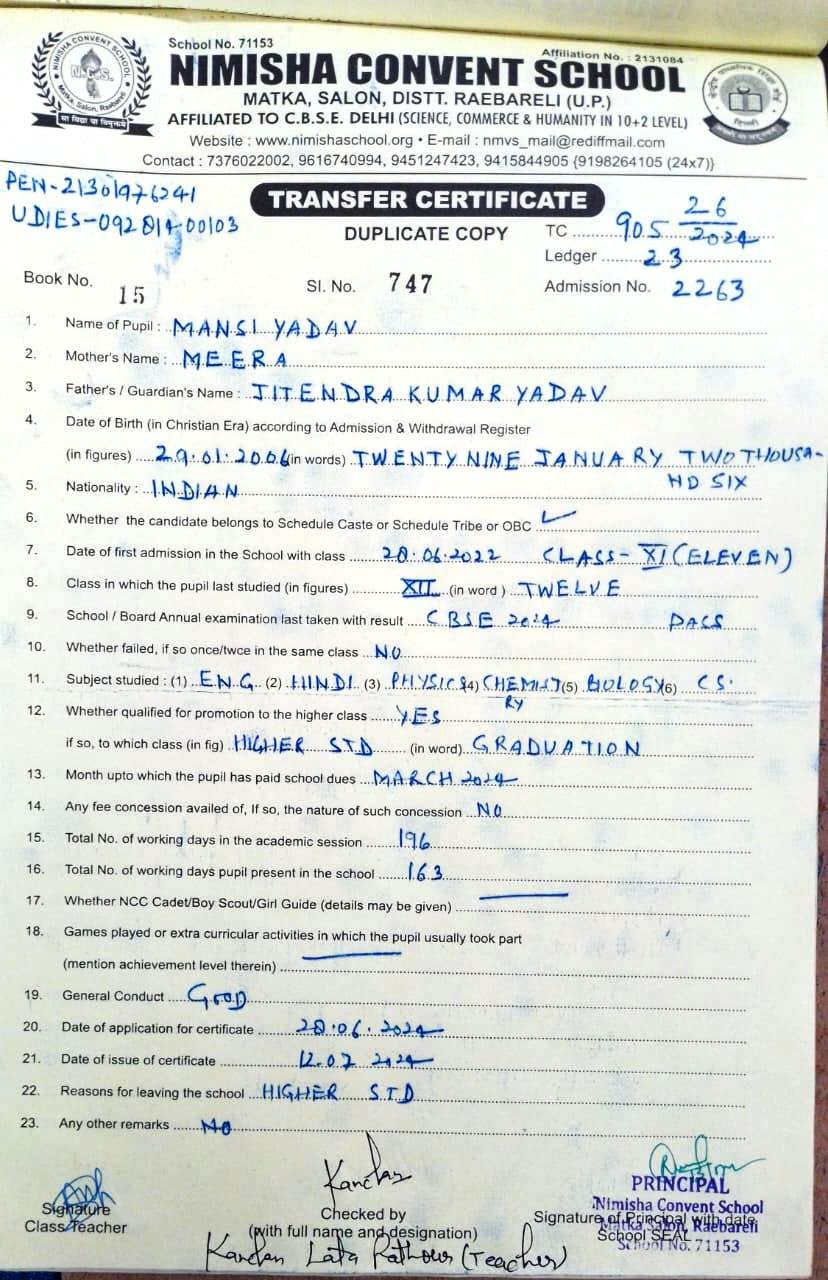 School No. 71153
Affiliation No. : 2131084
NIMISHA CONVENT SCHOOL
NIMISHA CONVENT SCHOOL
N.C.S.
Matka, Salon, Raebareli
सा विद्या या विमुक्तये
MATKA, SALON, DISTT. RAEBARELI (U.P.)
AFFILIATED TO C.B.S.E. DELHI (SCIENCE, COMMERCE & HUMANITY IN 10+2 LEVEL)
Website : www.nimishaschool.org • E-mail : nmvs_mail@rediffmail.com
Contact : 7376022002, 9616740994, 9451247423, 9415844905 {9198264105 (24x7)}
PEN-21301976241
UDIES-092814-00103
TRANSFER CERTIFICATE
DUPLICATE COPY
TC 905 26/2024
Ledger 23
Book No. 15
Sl. No. 747
Admission No. 2263
1. Name of Pupil : MANSI YADAV
2. Mother's Name : MEERA
3. Father's / Guardian's Name : JITENDRA KUMAR YADAV
4. Date of Birth (in Christian Era) according to Admission & Withdrawal Register
(in figures) 29.01.2006 (in words) TWENTY NINE JANUARY TWO THOUSA-
ND SIX
5. Nationality : INDIAN
6. Whether the candidate belongs to Schedule Caste or Schedule Tribe or OBC ✓
7. Date of first admission in the School with class 28.06.2022 CLASS-XI (ELEVEN)
8. Class in which the pupil last studied (in figures) XII (in word ) TWELVE
9. School / Board Annual examination last taken with result CBSE 2024 PACS
10. Whether failed, if so once/twce in the same class NO
11. Subject studied : (1) ENG (2) HINDI (3) PHYSICS (4) CHEMIST (5) BIOLOGY (6) CS
RY
12. Whether qualified for promotion to the higher class YES
if so, to which class (in fig) HIGHER STD (in word) GRADUATION
13. Month upto which the pupil has paid school dues MARCH 2024
14. Any fee concession availed of, If so, the nature of such concession NO
15. Total No. of working days in the academic session 196
16. Total No. of working days pupil present in the school 163
17. Whether NCC Cadet/Boy Scout/Girl Guide (details may be given)
18. Games played or extra curricular activities in which the pupil usually took part
(mention achievement level therein)
19. General Conduct GOOD
20. Date of application for certificate 28.06.2024
21. Date of issue of certificate 12.07 2024
22. Reasons for leaving the school HIGHER STD
23. Any other remarks NO
Kanchan
PRINCIPAL
Nimisha Convent School
Matka, Salon, Raebareli
School No. 71153
Signature
Class Teacher
Checked by
(with full name and designation)
Kanchan Lata Rathour (Teacher)
Signature of Principal with date
School SEAL